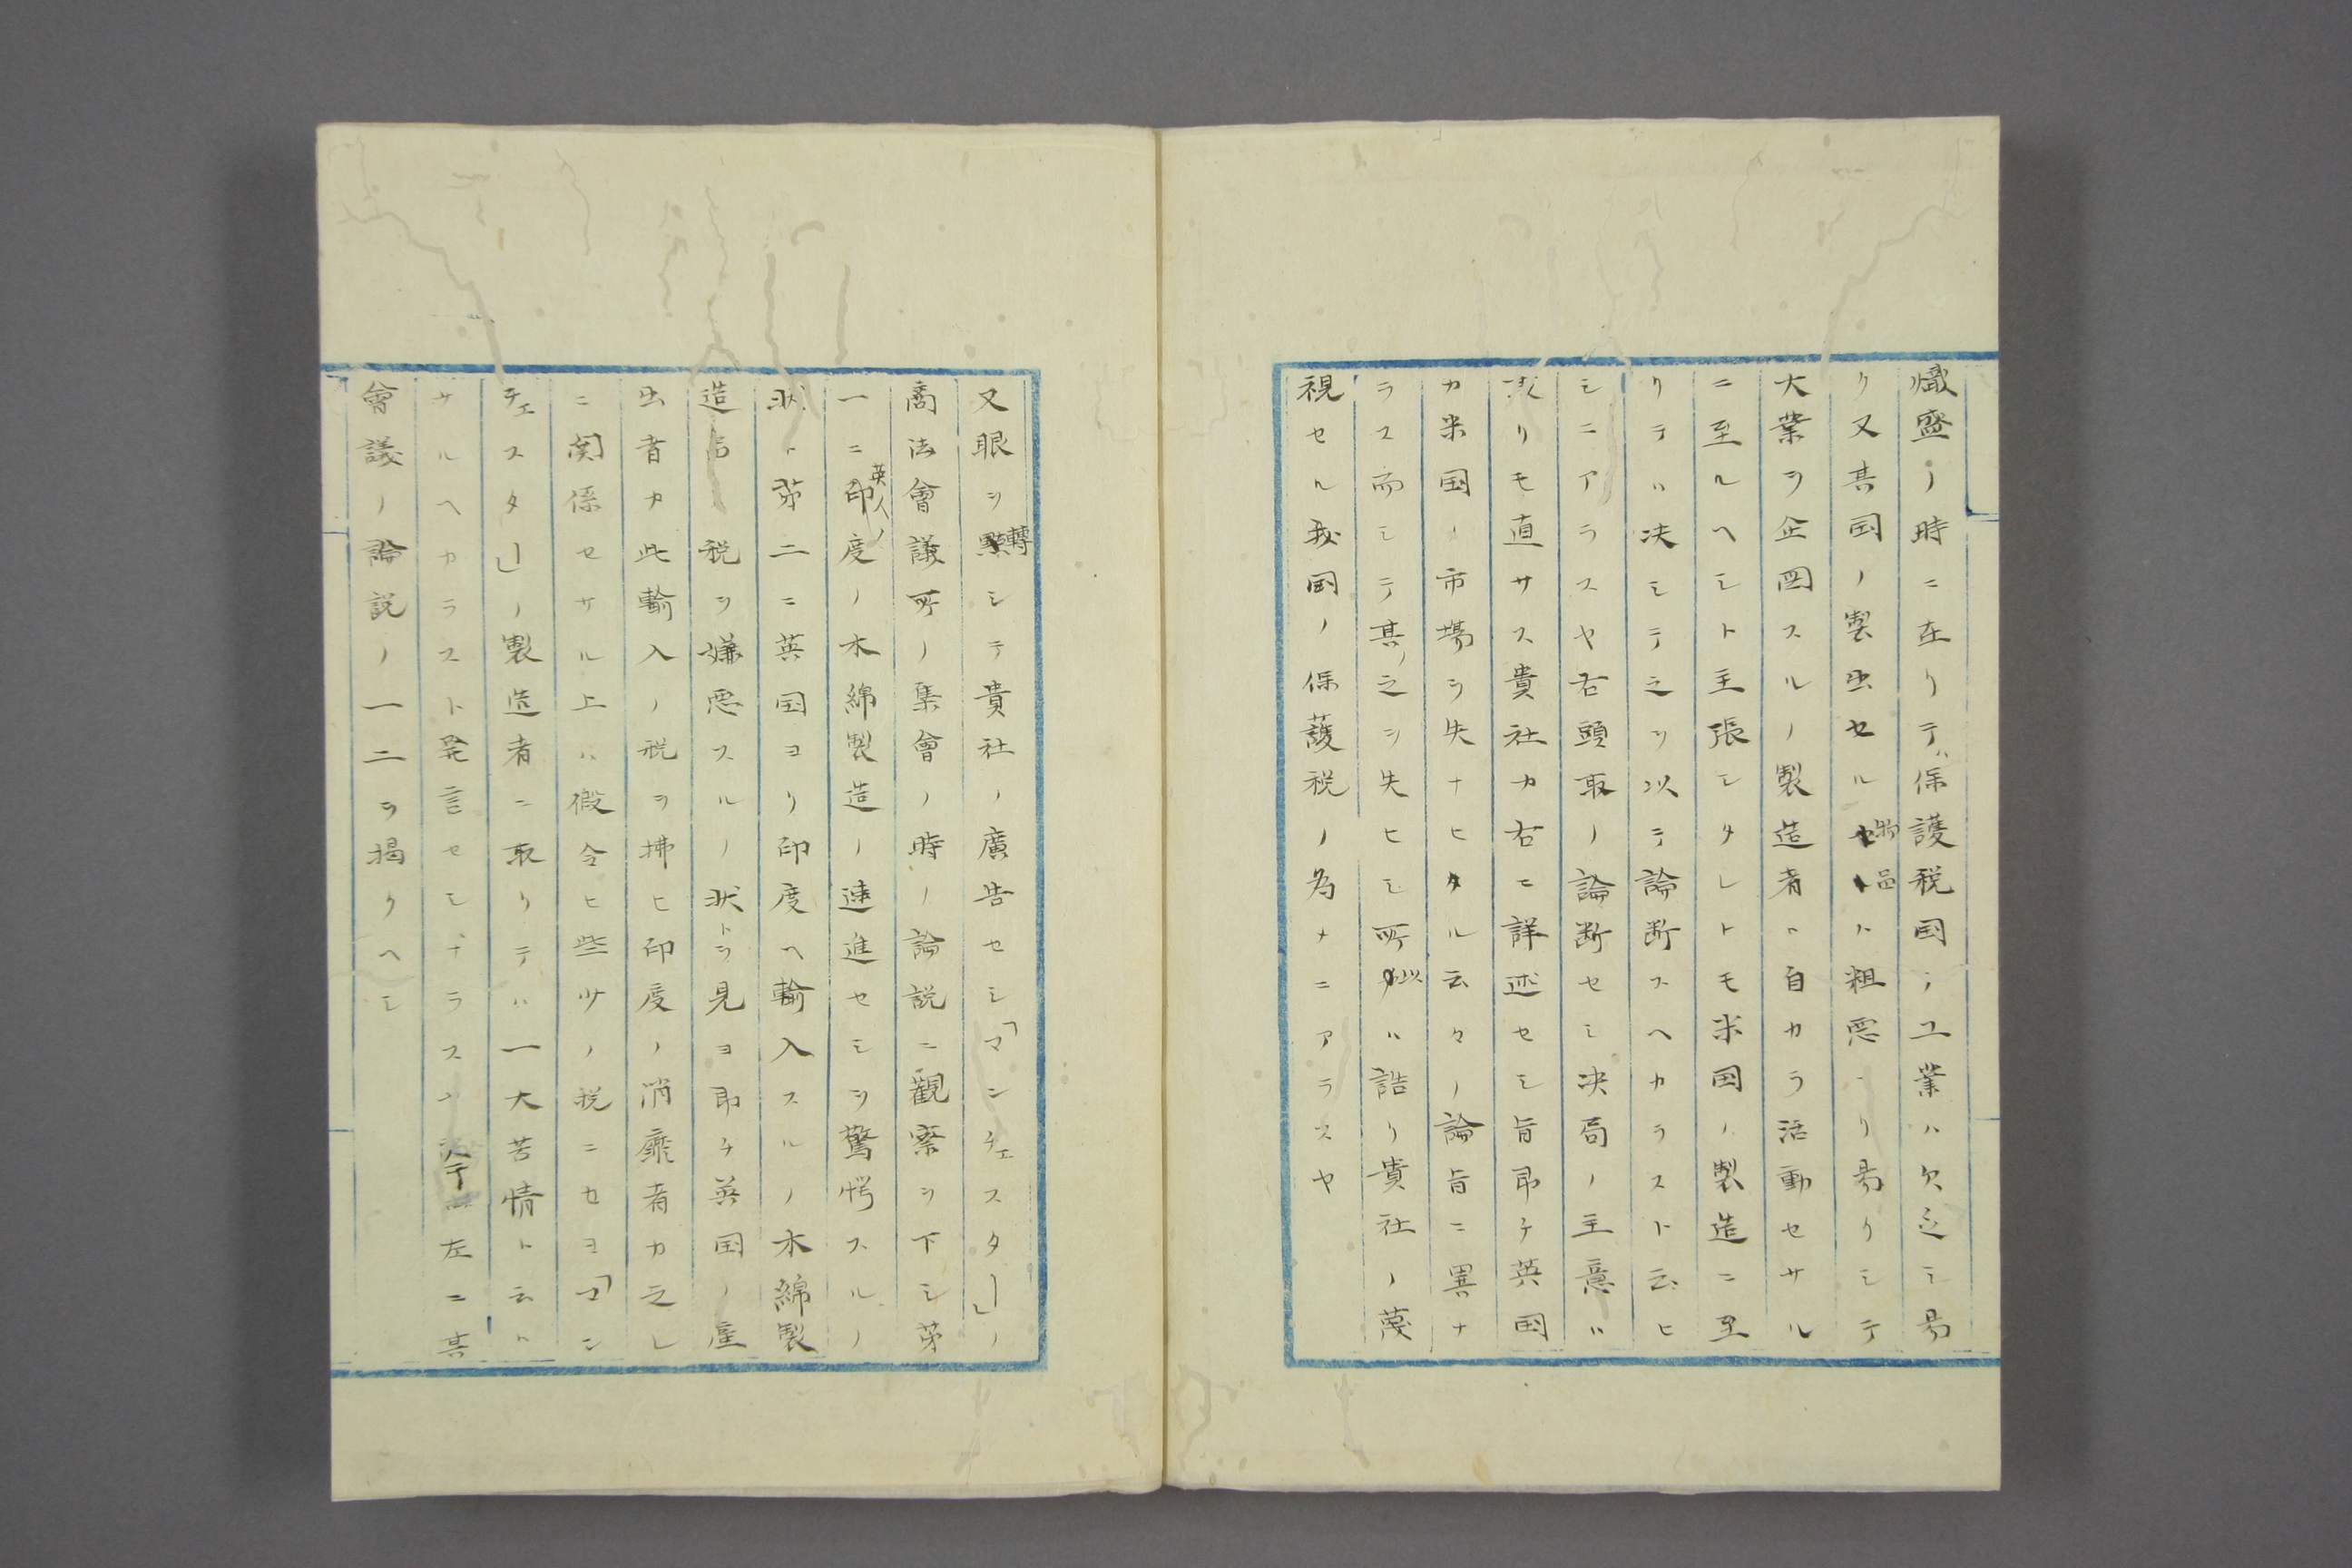 熾盛ノ時ニ在リテハ保護税国ノ工業ハ欠乏シ易
ク又其国ノ製出セル物品ハ粗悪ナリ易クシテ
大業ヲ企図スルノ製造者ハ自カラ活動セサル
ニ至ルヘシト主張シタレトモ米国ノ製造ニ至
リテハ决シテ之ヲ以テ論断スヘカラスト云ヒ
シニアラスヤ右頭取ノ論断セシ决局ノ主意ハ
リモ直サス貴社カ右ニ詳述セシ旨即チ英国
カ米国ノ市場ヲ失ナヒタル云々ノ論旨ニ異ナ
ラス而シテ其ノ之ヲ失ヒシ所以ハ誥リ貴社ノ蔑
視セル我国ノ保護税ノ為ナニアラスヤ
又眼ヲ轉シテ貴社ノ廣告セシ「マンチエスター」ノ
商法會議所ノ集會ノ時ノ論説ニ觀察ヲ下シ第
一ニ英人ノ印度ノ木綿製造ノ速進セシヲ驚愕スルノ
状ト第二ニ英国ヨリ印度ヘ輸入スルノ木綿製
造ノ税ヲ嫌悪スルノ状トヲ見ヨ即チ英国ノ産
出者カ此輸入ノ税ヲ拂ヒ印度ノ消靡者カ之レ
ニ関係セサル上ハ假令ヒ些少ノ税ニセヨ「マン
チエスター」ノ製造者ニ取リテハ一大苦情ト云ハ
サルヘカラスト発言セシナラスノ左ニ其
會議ノ論説ノ一二ヲ掲クヘシ